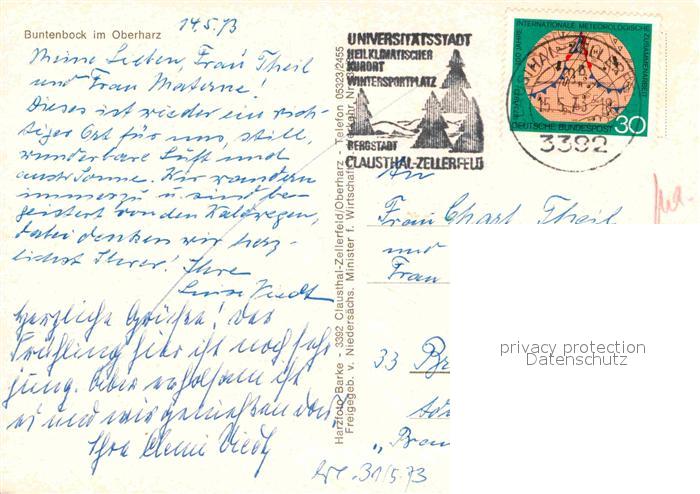 Buntenbock im Oberharz
14.5.73
Meine Lieben, Frau Theil
und Frau Materne!
Dieses ist wieder ein rich-
tiger Ort für uns, still,
wunderbare Luft und
auch Sonne. Wir wandern
immerzu u. sind be-
geistert von den Waldwegen,
dabei denken wir herz-
lichst Ihrer! Ihre
Luise Viedt
Herzliche Grüße! Der
Frühling hier ist noch sehr
jung. Aber erholsam ist
es und wir genießen
Ihre Viedt
Harzfoto Barke - 3392 Clausthal-Zellerfeld/Oberharz - Telefon 05323/2455
Freigegeb. v. Niedersächs. Minister f. Wirtschaft
UNIVERSITÄTSSTADT
HEILKLIMATISCHER
KURORT
WINTERSPORTPLATZ
BERGSTADT
CLAUSTHAL-ZELLERFELD
100 JAHRE INTERNATIONALE METEOROLOGISCHE ZUSAMMENARBEIT
DEUTSCHE BUNDESPOST 30
15.5.73
3392
An
Frau Theil
und
Frau
33 Br
"Bra
31/5.73
privacy protection
Datenschutz